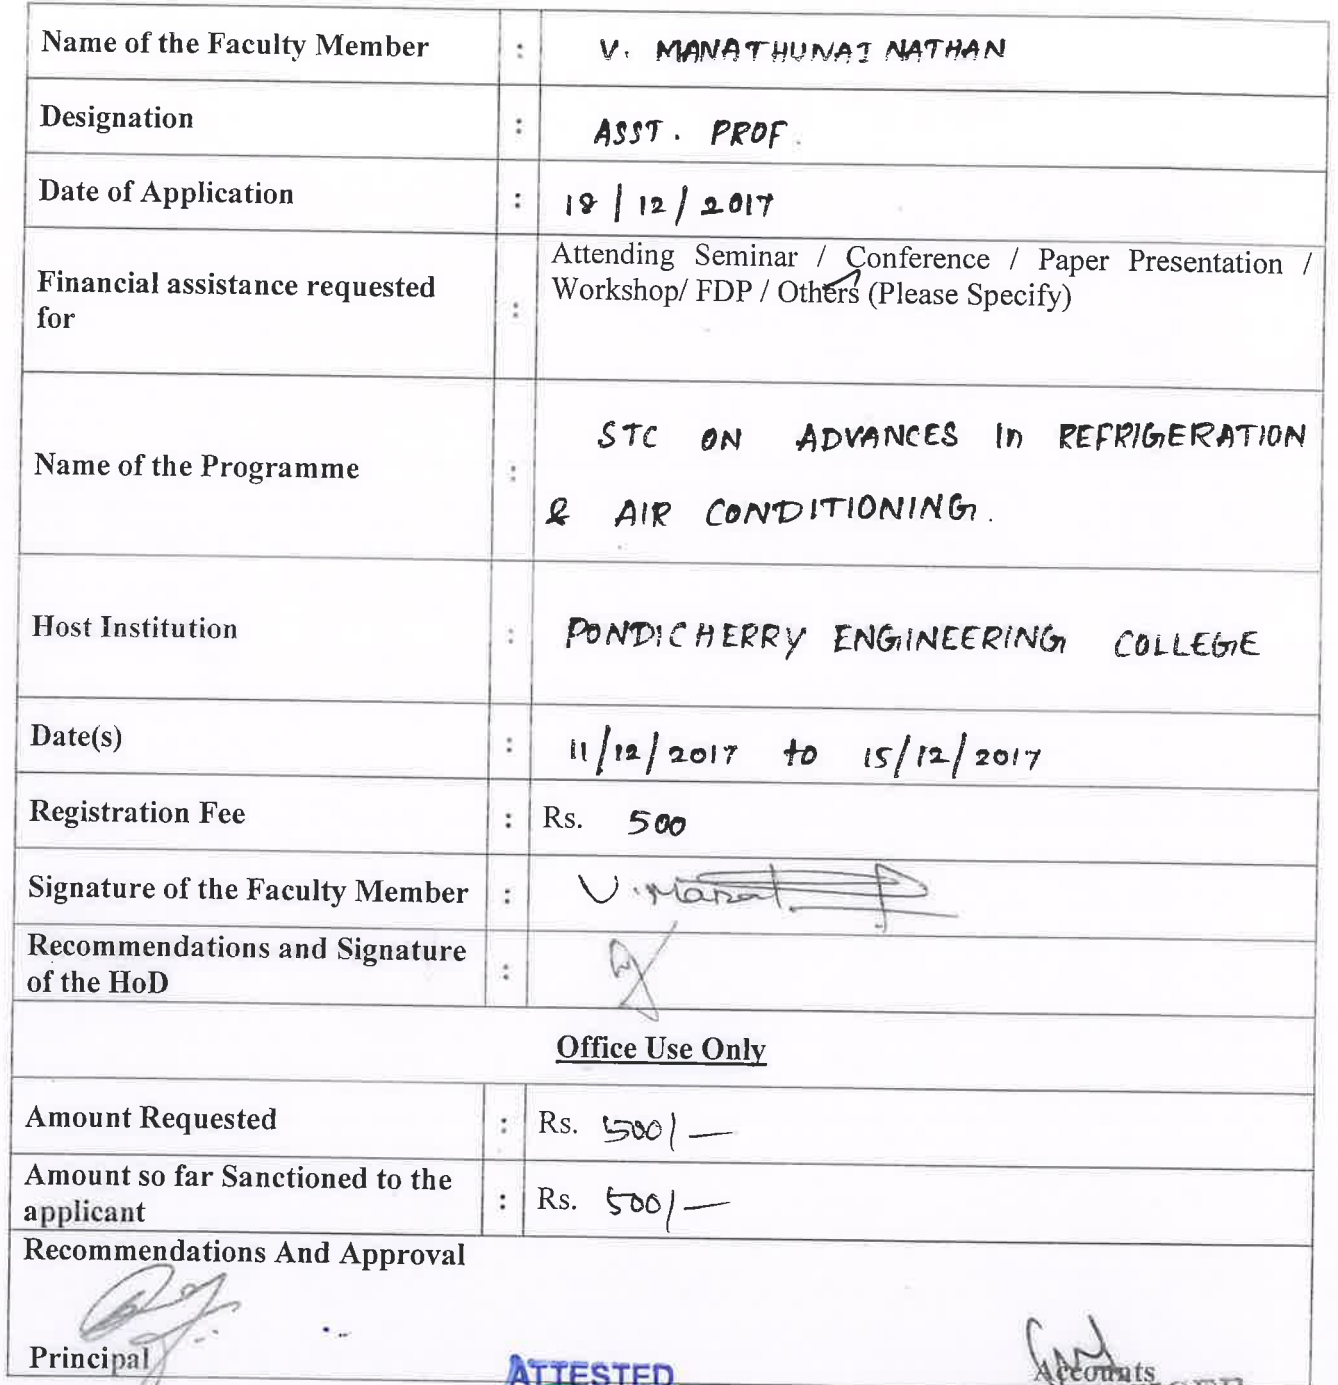 Name of the Faculty Member : V. MANATHUNAI NATHAN
Designation : ASST. PROF.
Date of Application : 18/12/2017
Financial assistance requested for : Attending Seminar / Conference / Paper Presentation /
Workshop/ FDP / Others (Please Specify)
Name of the Programme : STC ON ADVANCES In REFRIGERATION
& AIR CONDITIONING.
Host Institution : PONDICHERRY ENGINEERING COLLEGE
Date(s) : 11/12/2017 to 15/12/2017
Registration Fee : Rs. 500
Signature of the Faculty Member : V. Manat
Recommendations and Signature
of the HoD :
Office Use Only
Amount Requested : Rs. 500/—
Amount so far Sanctioned to the
applicant : Rs. 500/—
Recommendations And Approval
Principal
ATTESTED
Accounts